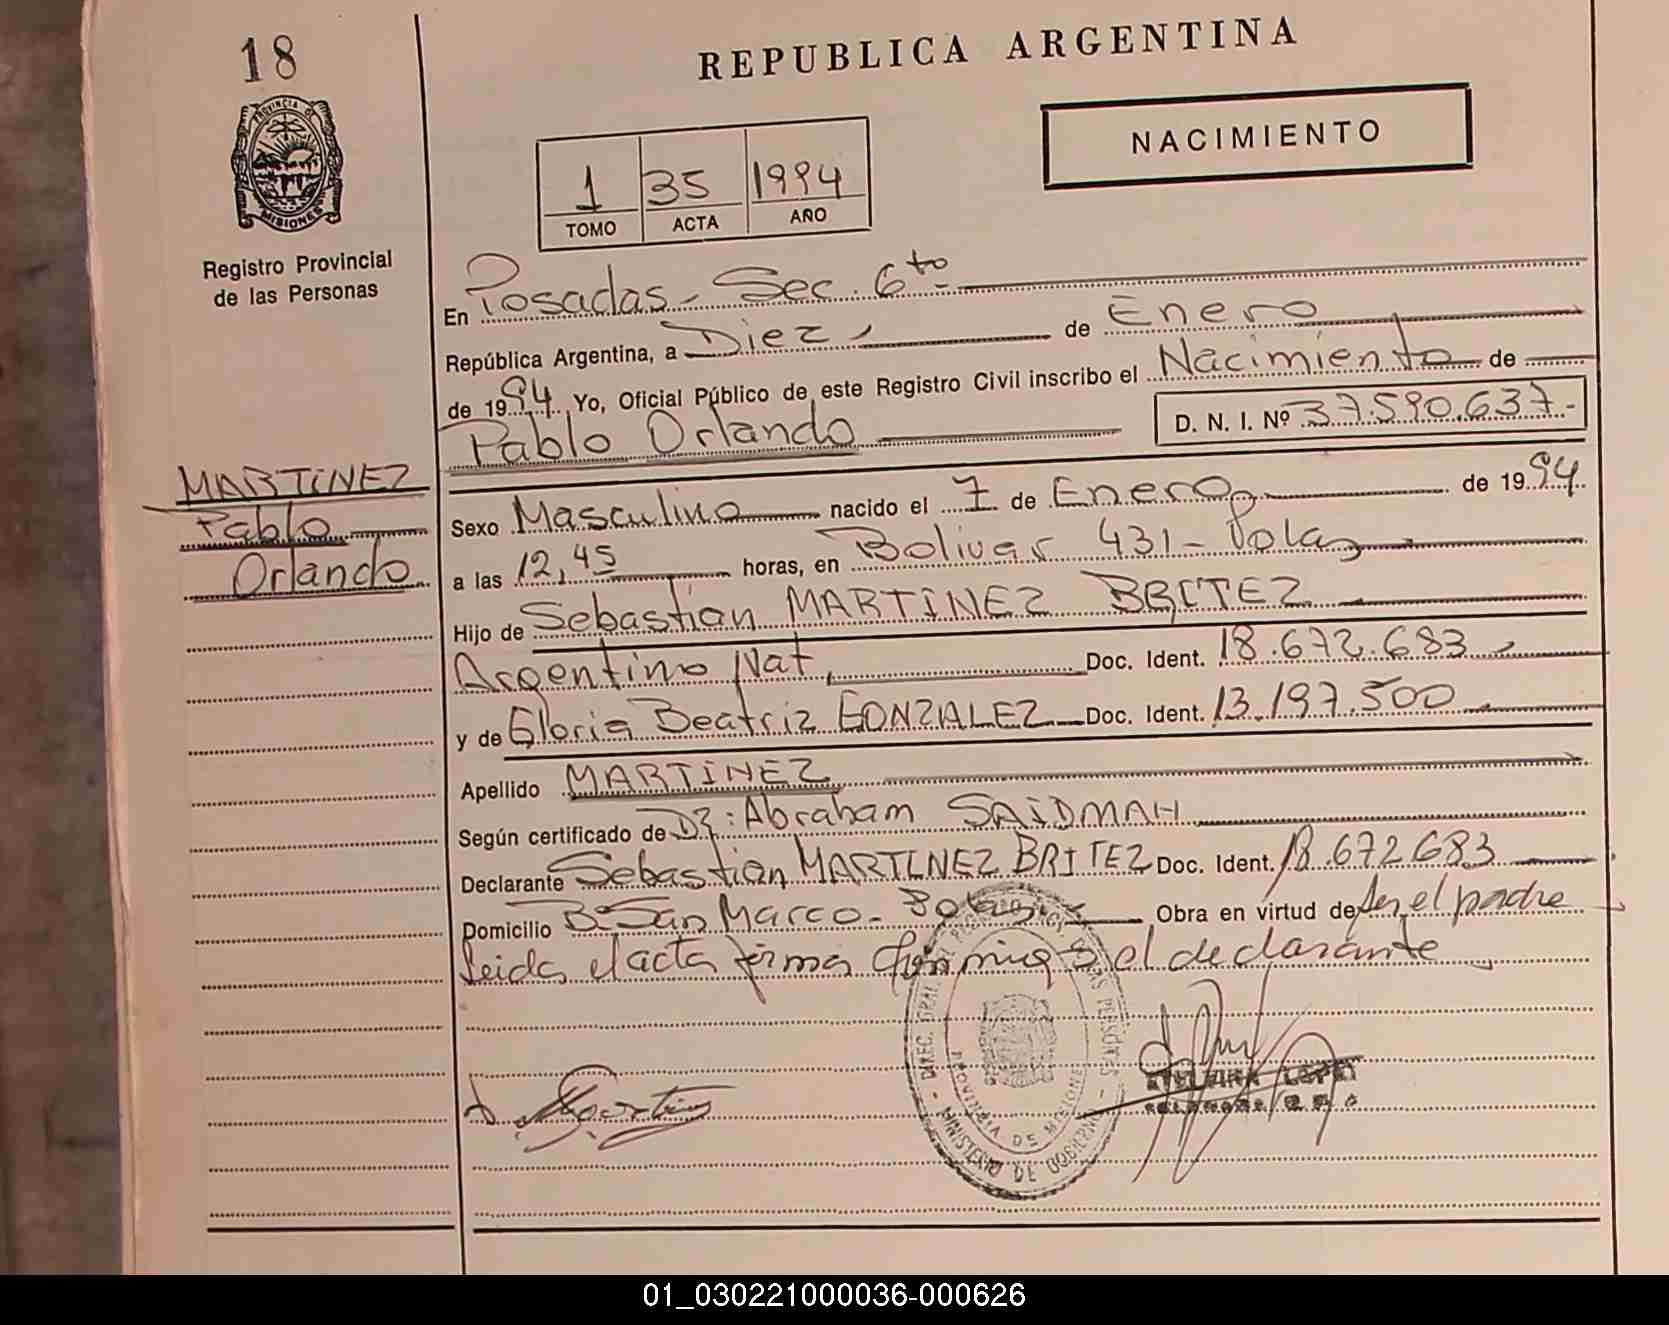 18
REPUBLICA ARGENTINA
NACIMIENTO
PROVINCIA DE
MISIONES
Registro Provincial
de las Personas
1 35 1994
TOMO ACTA AÑO
En Posadas - Sec. 6to -
República Argentina, a Diez de Enero
de 1994 Yo, Oficial Público de este Registro Civil inscribo el Nacimiento de
Pablo Orlando D. N. I. Nº 37.590.637-
MARTINEZ
Pablo
Orlando
Sexo Masculino nacido el 7 de Enero de 1994
a las 12,45 horas, en Bolivar 431 - Pdas
Hijo de Sebastian MARTINEZ BRITEZ
Argentino Nat. Doc. Ident. 18.672.683
y de Gloria Beatriz GONZALEZ Doc. Ident. 13.197.500
Apellido MARTINEZ
Según certificado de Dr: Abraham SAIDMAN
Declarante Sebastian MARTINEZ BRITEZ Doc. Ident. 18.672683
Domicilio Bº San Marco - Pdas Obra en virtud de Ser el padre
Leida el acta firma conmigo el declarante
DIREC. GRAL. DE LAS PERSONAS - MINISTERIO DE GOBIERNO -
PROVINCIA DE MISIONES
LOPEZ
01_030221000036-000626